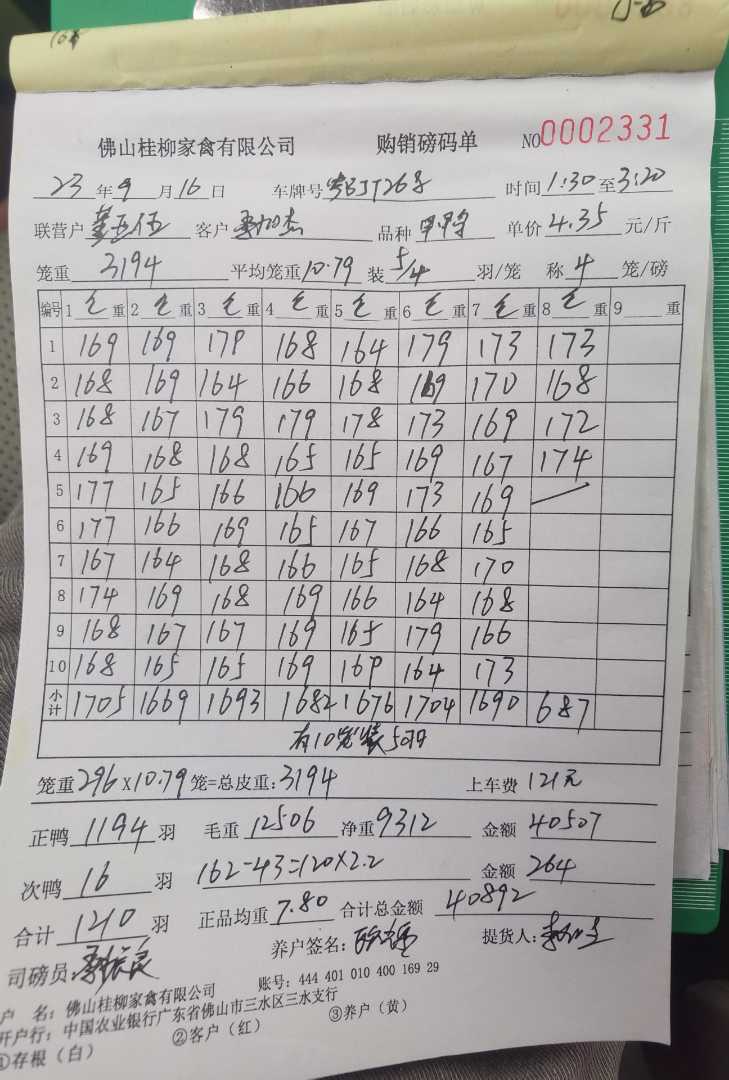 佛山桂柳家禽有限公司 购销磅码单 NO0002331
23年9月16日 车牌号 JT268 时间1:30至3:20
联营户 客户 品种 单价4.35元/斤
笼重3194 平均笼重10.79 装5/4羽/笼 称4笼/磅
编号 1毛重 2毛重 3毛重 4毛重 5毛重 6毛重 7毛重 8毛重 9重
1 169 169 179 168 164 179 173 173
2 168 169 164 166 168 169 170 168
3 168 167 179 179 178 173 169 172
4 169 168 168 165 165 169 167 174
5 177 165 166 166 169 173 169
6 177 166 169 165 167 166 165
7 167 164 168 166 165 168 170
8 174 169 168 169 166 164 168
9 168 167 167 169 165 179 166
10 168 165 165 169 169 164 173
小计 1705 1669 1693 1682 1676 1704 1690 687
有10笼装5羽
笼重296×10.79笼=总皮重:3194 上车费121元
正鸭1194羽 毛重12506 净重9312 金额40507
次鸭16羽 162-43=120×2.2 金额264
合计1210羽 正品均重7.80 合计总金额40892
司磅员: 养户签名: 提货人:
户 名：佛山桂柳家禽有限公司 账号：444 401 010 400 169 29
开户行：中国农业银行广东省佛山市三水区三水支行
①存根（白） ②客户（红） ③养户（黄）